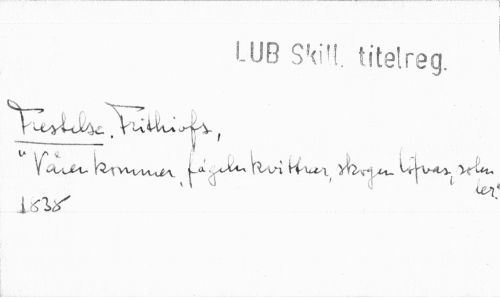 LUB Skill. titelreg.
Frestelse, Frithiofs,
"Våren kommer, fågeln kvittrar, skogen löfvas, solen
ler."
1838